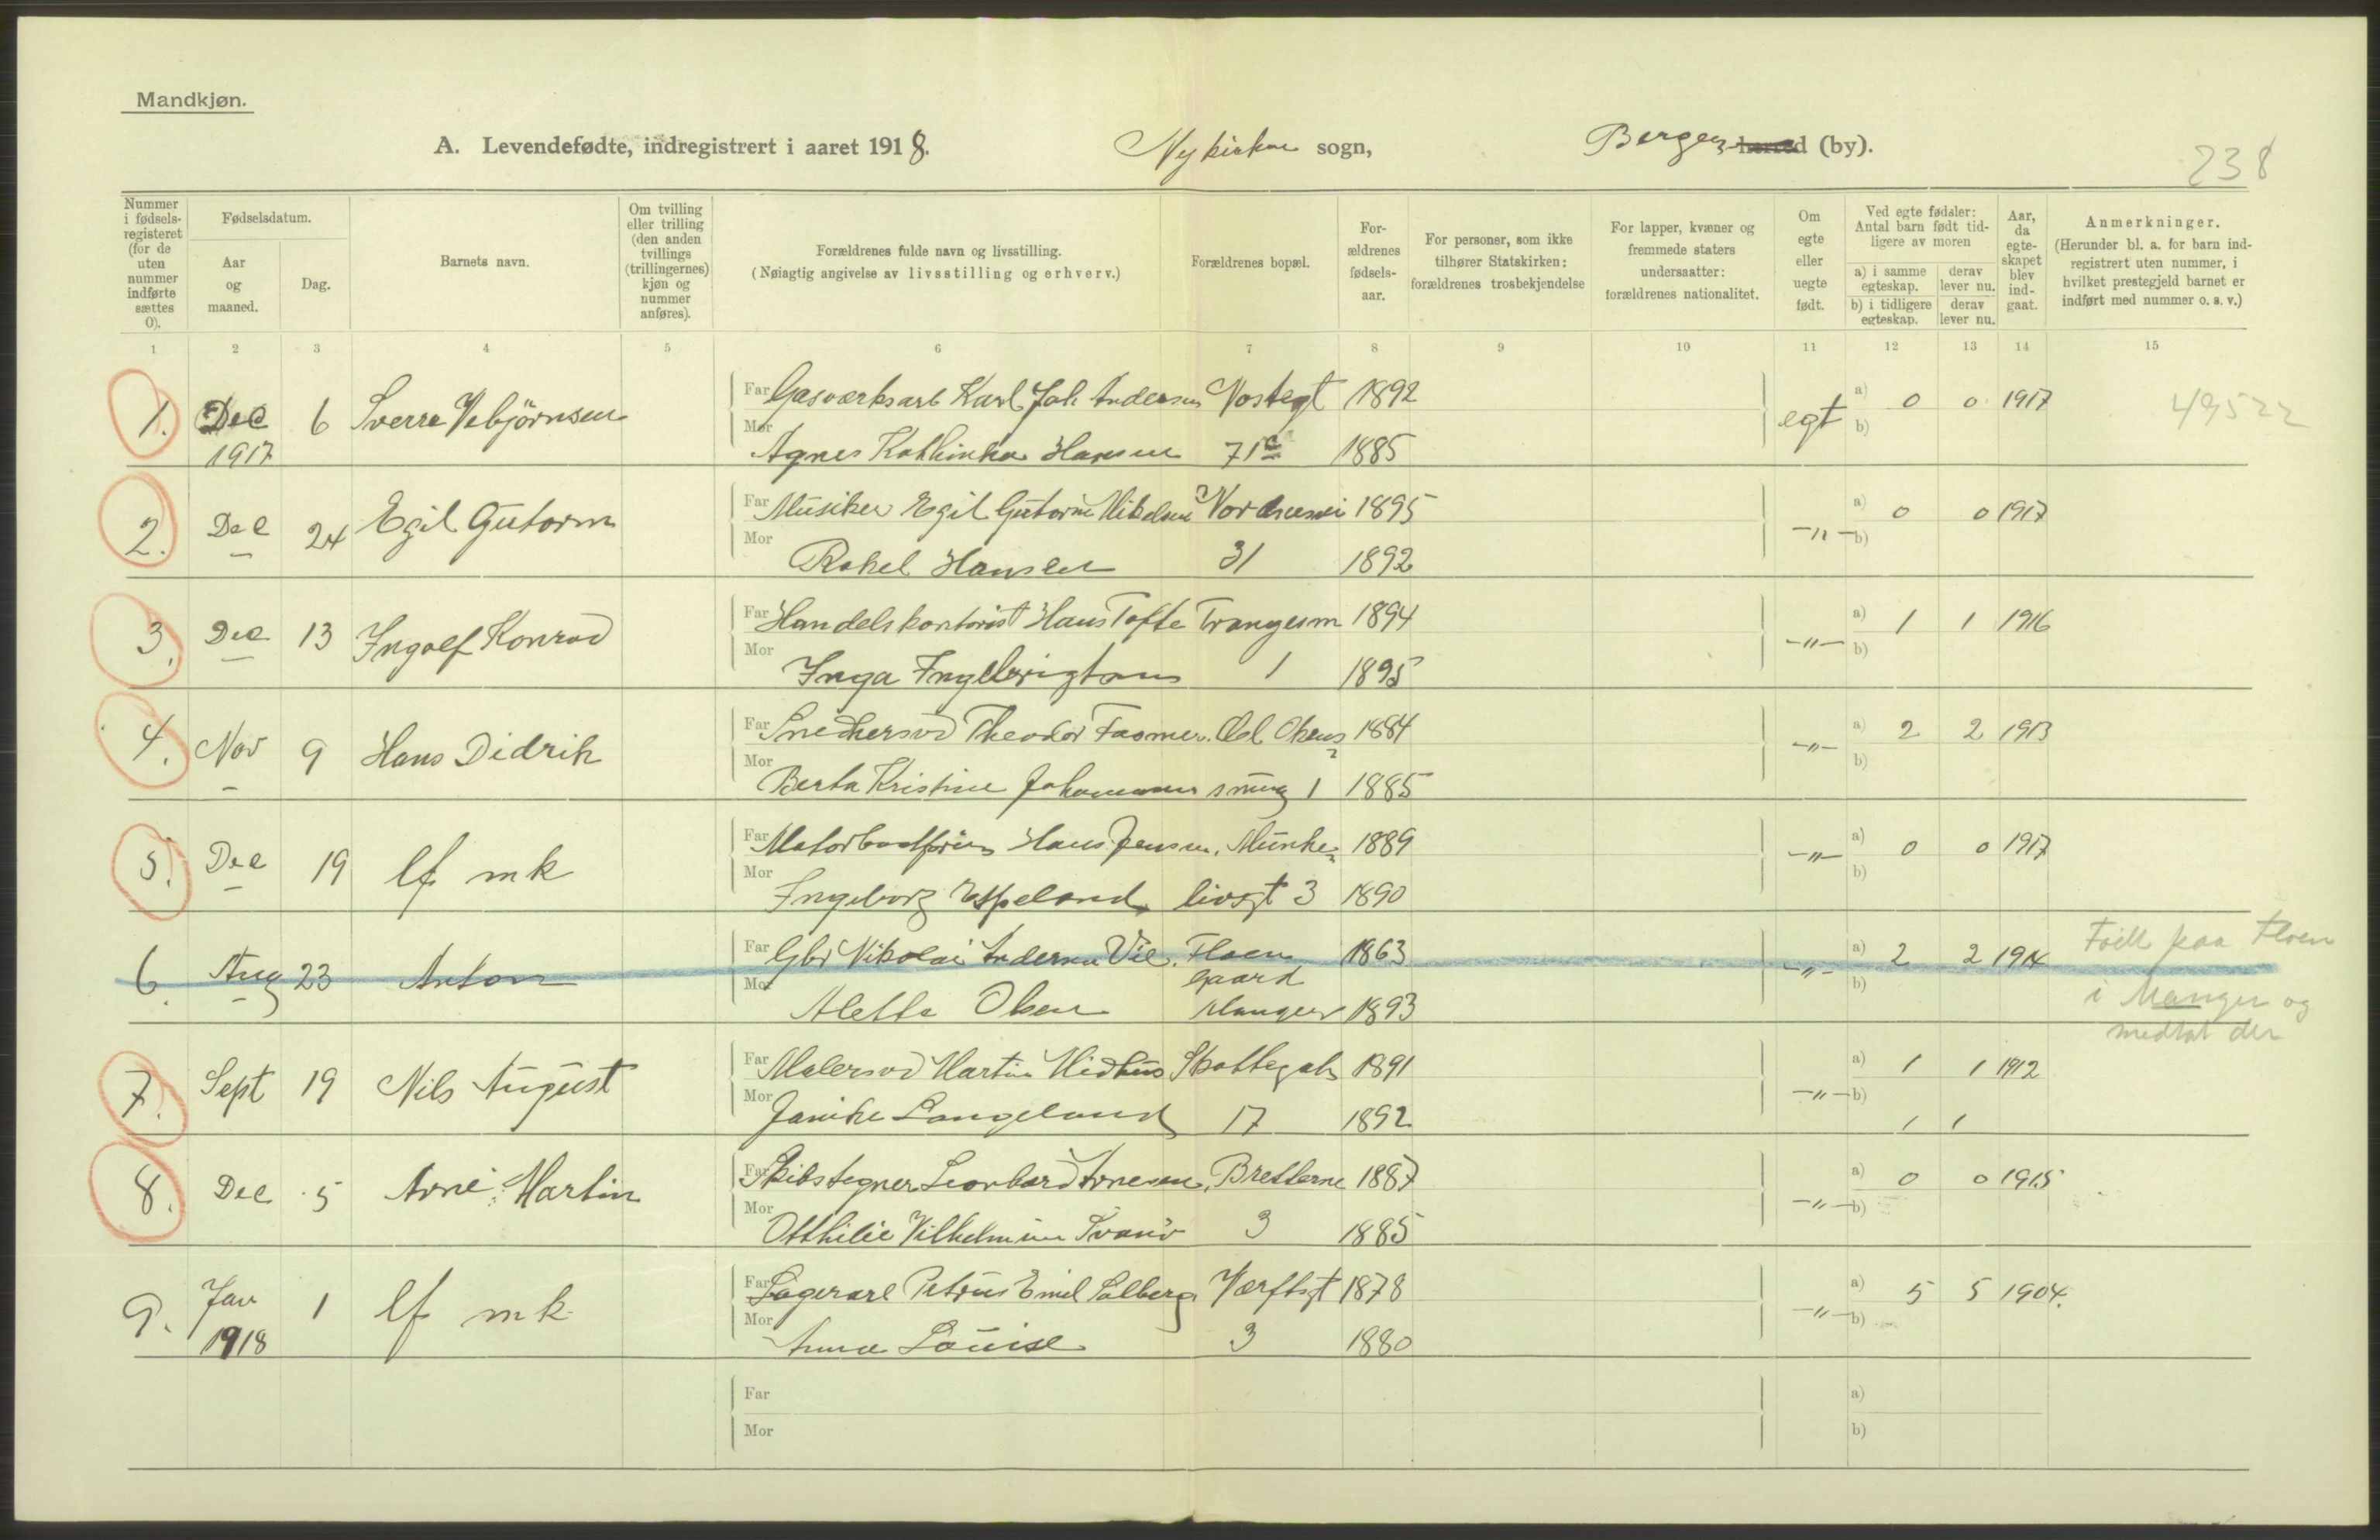 Mandkjøn.
A. Levendefødte, indregistrert i aaret 1918. Nykirken sogn, Bergen herred (by).
238
Nummer i fødselsregisteret (for de uten nummer indførte sættes 0).
Fødselsdatum.
Aar og maaned.
Dag.
Barnets navn.
Om tvilling eller trilling (den anden tvillings (trillingernes) kjøn og nummer anføres).
Forældrenes fulde navn og livsstilling.
(Nøiagtig angivelse av livsstilling og erhverv.)
Forældrenes bopæl.
Forældrenes fødselsaar.
For personer, som ikke tilhører Statskirken: forældrenes trosbekjendelse
For lapper, kvæner og fremmede staters undersaatter: forældrenes nationalitet.
Om egte eller uegte født.
Ved egte fødsler: Antal barn født tidligere av moren
a) i samme egteskap. derav lever nu.
b) i tidligere egteskap. derav lever nu.
Aar, da egteskapet blev indgaat.
Anmerkninger.
(Herunder bl. a. for barn indregistrert uten nummer, i hvilket prestegjeld barnet er indført med nummer o. s. v.)
1 2 3 4 5 6 7 8 9 10 11 12 13 14 15
1. Dec 6 Sverre Vebjörnsen Far Gasværksarb Karl Joh Andersen Nostegt 1892 egt a) 0 0 1917 49522
1917 Mor Agnes Kathinka Hansen 71c 1885 b)
2. Dec 24 Egil Gutorm Far Musiker Egil Gutorm Mikelsen 1895 -"- a) 0 0 1917
Mor Rakel Hansen 31 1892 b)
3. Dec 13 Ingolf Konrad Far Handelskontorist Hans Tofte Trangesm 1894 -"- a) 1 1 1916
Mor Inga 1 1895 b)
4. Nov 9 Hans Didrik Far Snedkersvd Theodor Fasmer. Ole Olsens 1884 -"- a) 2 2 1913
Mor Berta Kristine Johannesen smug 1 1885 b)
5. Dec 19 lf mk Far Hans Jensen, Munke 1889 -"- a) 0 0 1917
Mor Ingeborg Espeland livsgt 3 1890 b)
6. Aug 23 Anton Far Gbr Nikolai Andersen Floen 1863 -"- a) 2 2 1914 Född paa Floen
Mor Aletta Olsen gaard Manger 1893 b) i Manger og
medtat der
7. Sept 19 Nils August Far Malersvd Martin Midhus Skottegaten 1891 -"- a) 1 1 1912
Mor Janike Langeland 17 1892 b) 1 1
8. Dec 5 Arne Martin Far Skibstegner Leonhard Arnesen, Bretterne 1887 -"- a) 0 0 1915
Mor Otthilie Vilhelmine Svanö 3 1885 b)
9. Jan 1 lf mk Far Lagerarb Petrus Emil Solberg Værftsgt 1878 -"- a) 5 5 1904.
1918 Mor Anna Louise 3 1880 b)
Far a)
Mor b)